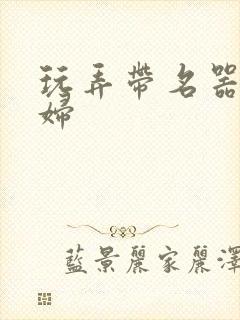 玩弄帶名器
婦
藍景麗家麗澤